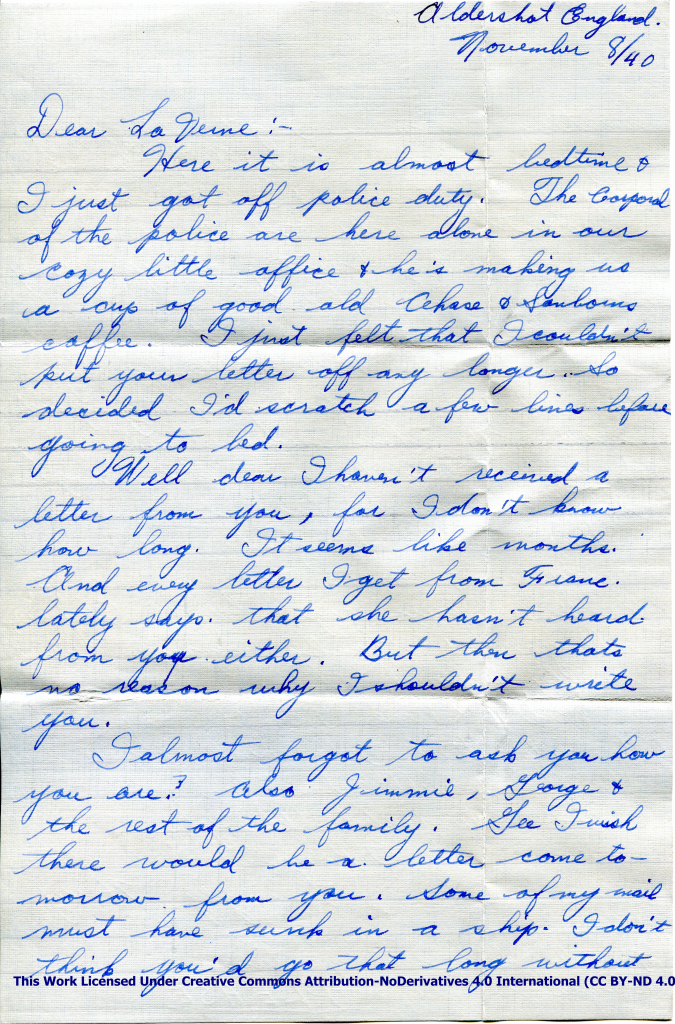 Aldershot England.
November 8/40
Dear La Verne :-
Here it is almost bedtime &
I just got off police duty. The Corporal
of the police are here alone in our
cozy little office & he's making us
a cup of good old Chase & Sanborns
coffee. I just felt that I couldn't
put your letter off any longer. So
decided I'd scratch a few lines before
going to bed.
Well dear I haven't received a
letter from you, for I don't know
how long. It seems like months.
And every letter I get from Franc.
lately says that she hasn't heard
from you either. But then thats
no reason why I shouldn't write
you.
I almost forgot to ask you how
you are? Also Jimmie, George &
the rest of the family. Gee I wish
there would be a letter come to-
morrow from you. Some of my mail
must have sunk in a ship. I don't
think you'd go that long without
This Work Licensed Under Creative Commons Attribution-NoDerivatives 4.0 International (CC BY-ND 4.0